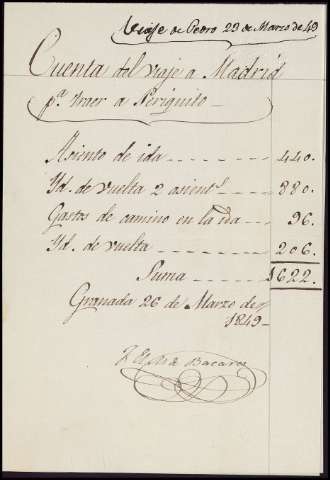 Viaje de Pedro 29 de Marzo de 49
Cuenta del viaje a Madrid
pª. traer a Periquito
Asiento de ida 440.
Yd. de vuelta 2 asientˢ. 880.
Gastos de camino en la ida 96.
Yd. de vuelta 206.
Suma 1622.
Granada 26 de Marzo de
1849